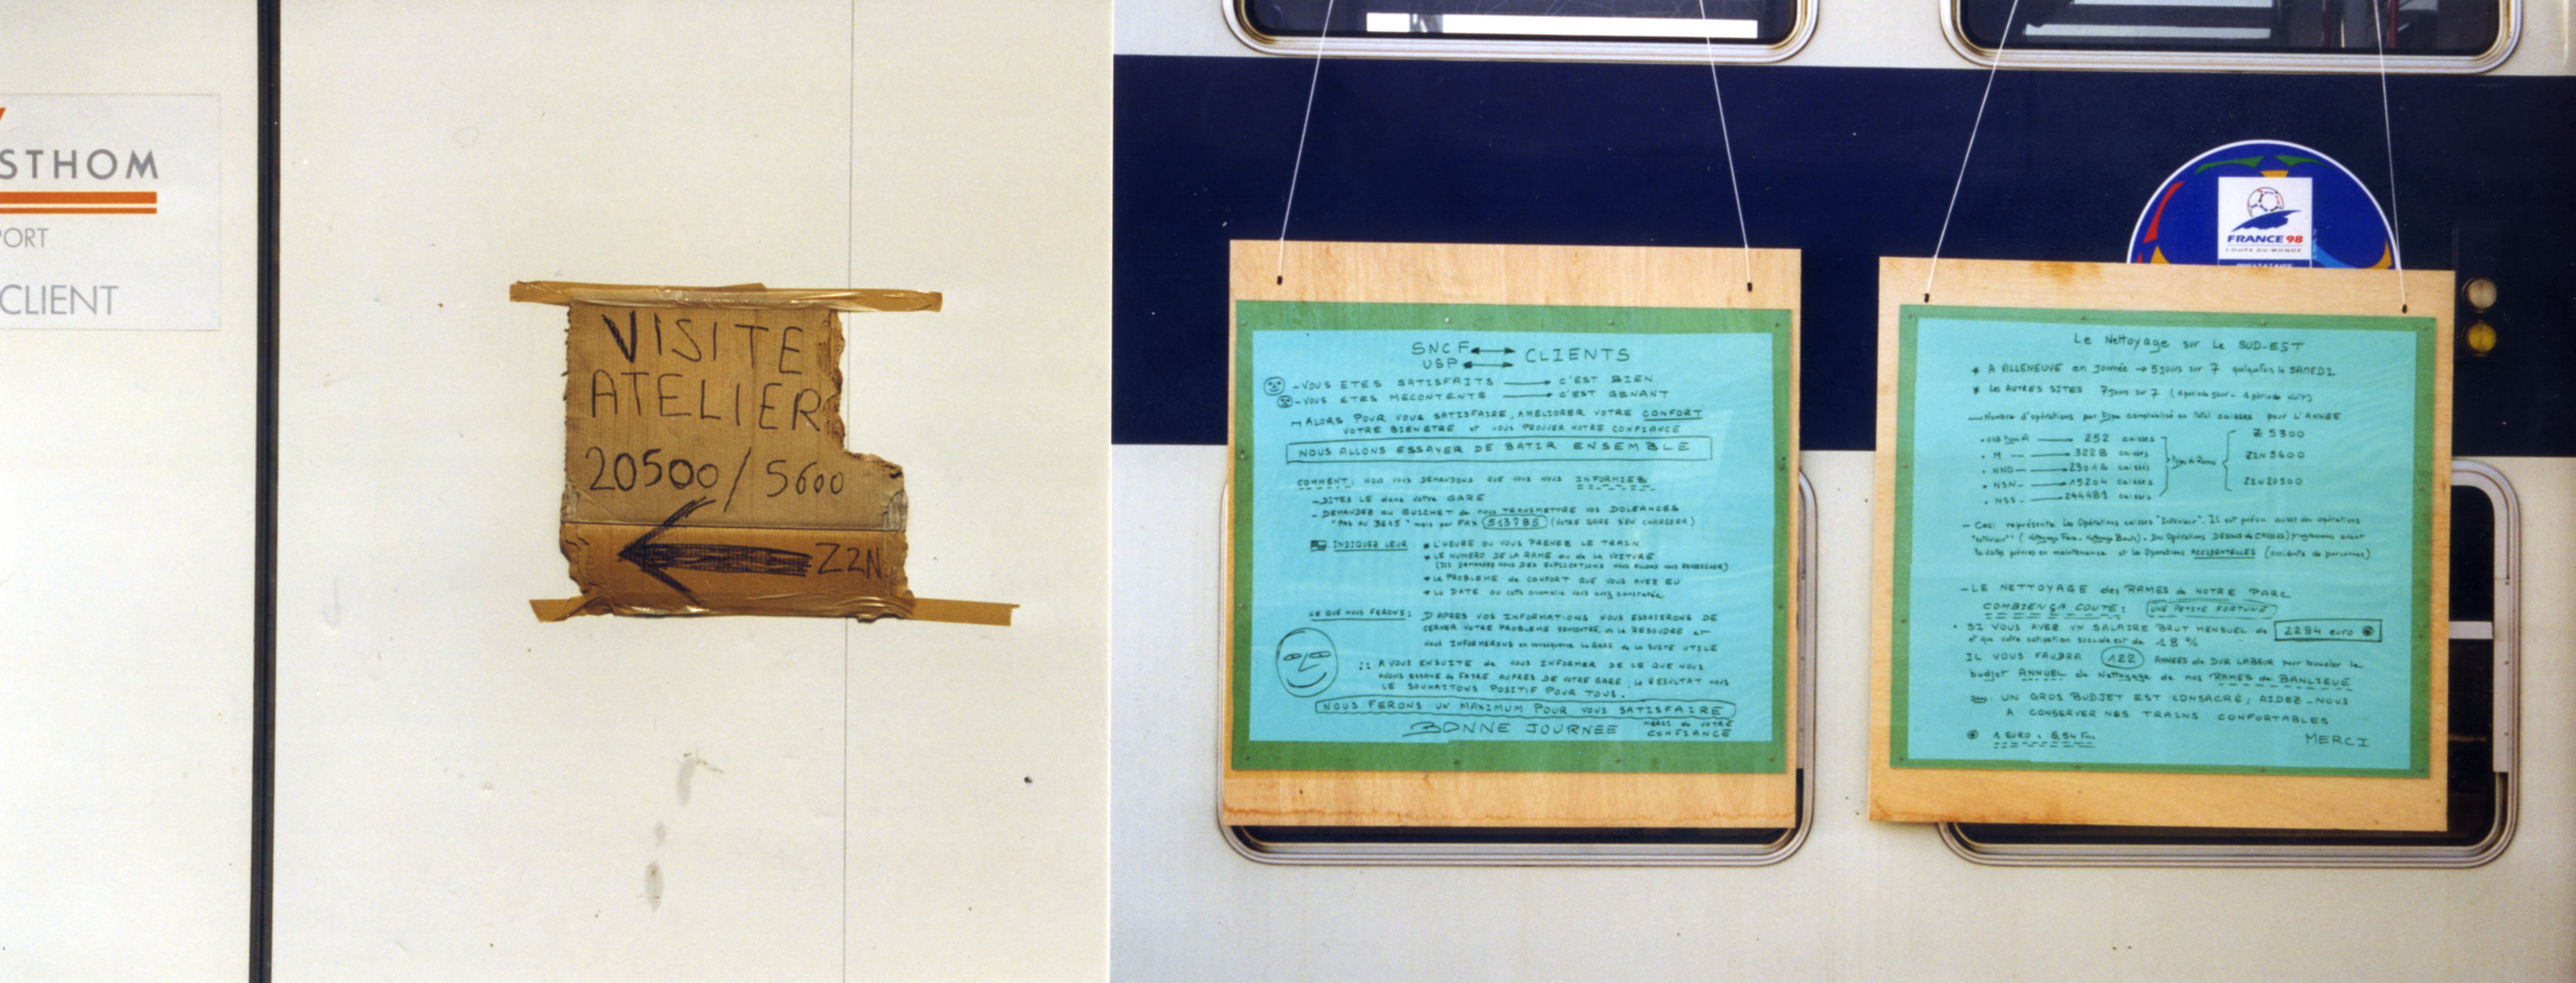 STHOM
PORT
CLIENT
VISITE
ATELIER
20500/5600
Z2N
SNCF ↔ CLIENTS
USP ↔
- VOUS ETES SATISFAITS → C'EST BIEN
- VOUS ETES MECONTENTS → C'EST GENANT
→ ALORS POUR VOUS SATISFAIRE, AMELIORER VOTRE CONFORT
VOTRE BIEN ETRE et VOUS PROUVER NOTRE CONFIANCE
NOUS ALLONS ESSAYER DE BATIR ENSEMBLE
COMMENT: NOUS VOUS DEMANDONS QUE VOUS NOUS INFORMIEZ
- DITES LE dans votre GARE
- DEMANDEZ au GUICHET de nous TRANSMETTRE VOS DOLEANCES
"PAS AU 3615" mais par FAX 513785 (VOTRE GARE S'EN CHARGERA)
INDIQUEZ LEUR: * L'HEURE OU VOUS PRENEZ LE TRAIN
* LE NUMERO DE LA RAME ou de la VOITURE
(SI DEMANDEZ NOUS DES EXPLICATIONS NOUS ALLONS VOUS RENSEIGNER)
* LE PROBLEME de CONFORT QUE VOUS AVEZ EU
* LA DATE ou cette anomalie vous avez constatée
CE QUE NOUS FERONS: D'APRES VOS INFORMATIONS NOUS ESSAIERONS DE
CERNER VOTRE PROBLEME RENCONTRE, de LE RESOUDRE et
NOUS INFORMERONS en conséquence la GARE de la SUITE UTILE
A VOUS ENSUITE de VOUS INFORMER DE CE QUE NOUS
AVONS ESSAYE de FAIRE AUPRES DE VOTRE GARE; LE RESULTAT NOUS
LE SOUHAITONS POSITIF POUR TOUS.
NOUS FERONS UN MAXIMUM POUR VOUS SATISFAIRE
BONNE JOURNEE MERCI de VOTRE
CONFIANCE
FRANCE 98
COUPE DU MONDE
Le Nettoyage sur Le SUD-EST
* A VILLENEUVE en journée → 5 jours sur 7 quelquefois le SAMEDI
* Les AUTRES SITES 7 jours sur 7 (1 période jour - 1 période nuit)
— Nombre d'opérations par type comptabilisé en Total caisses pour L'ANNEE
type A → 252 caisses
• M → 3228 caisses
• NND → 23016 caisses
• NSN → 15204 caisses
• NSS → 244481 caisses
type de Rames
Z 5300
Z2N 5600
Z2N 20500
- Ceci représente les Opérations caisses "Intérieur". Il est prévu aussi des opérations
"extérieur" (Nettoyage Face - Nettoyage Bouts). Des Opérations DESSOUS de CAISSES) programmées avant
la dates prévues en maintenance et les Operations ACCIDENTELLES (accidents de personnes)
- LE NETTOYAGE des RAMES de NOTRE PARC
COMBIEN ÇA COUTE: UNE PETITE FORTUNE
• SI VOUS AVEZ UN SALAIRE BRUT MENSUEL de 2294 euro
et que votre cotisation sociale est de 18 %
IL VOUS FAUDRA 122 ANNEES de DUR LABEUR pour boucler le
budget ANNUEL de Nettoyage de nos RAMES de BANLIEUE
Donc: UN GROS BUDGET EST CONSACRÉ; AIDEZ-NOUS
A CONSERVER NOS TRAINS CONFORTABLES
1 EURO = 6,54 Frs
MERCI